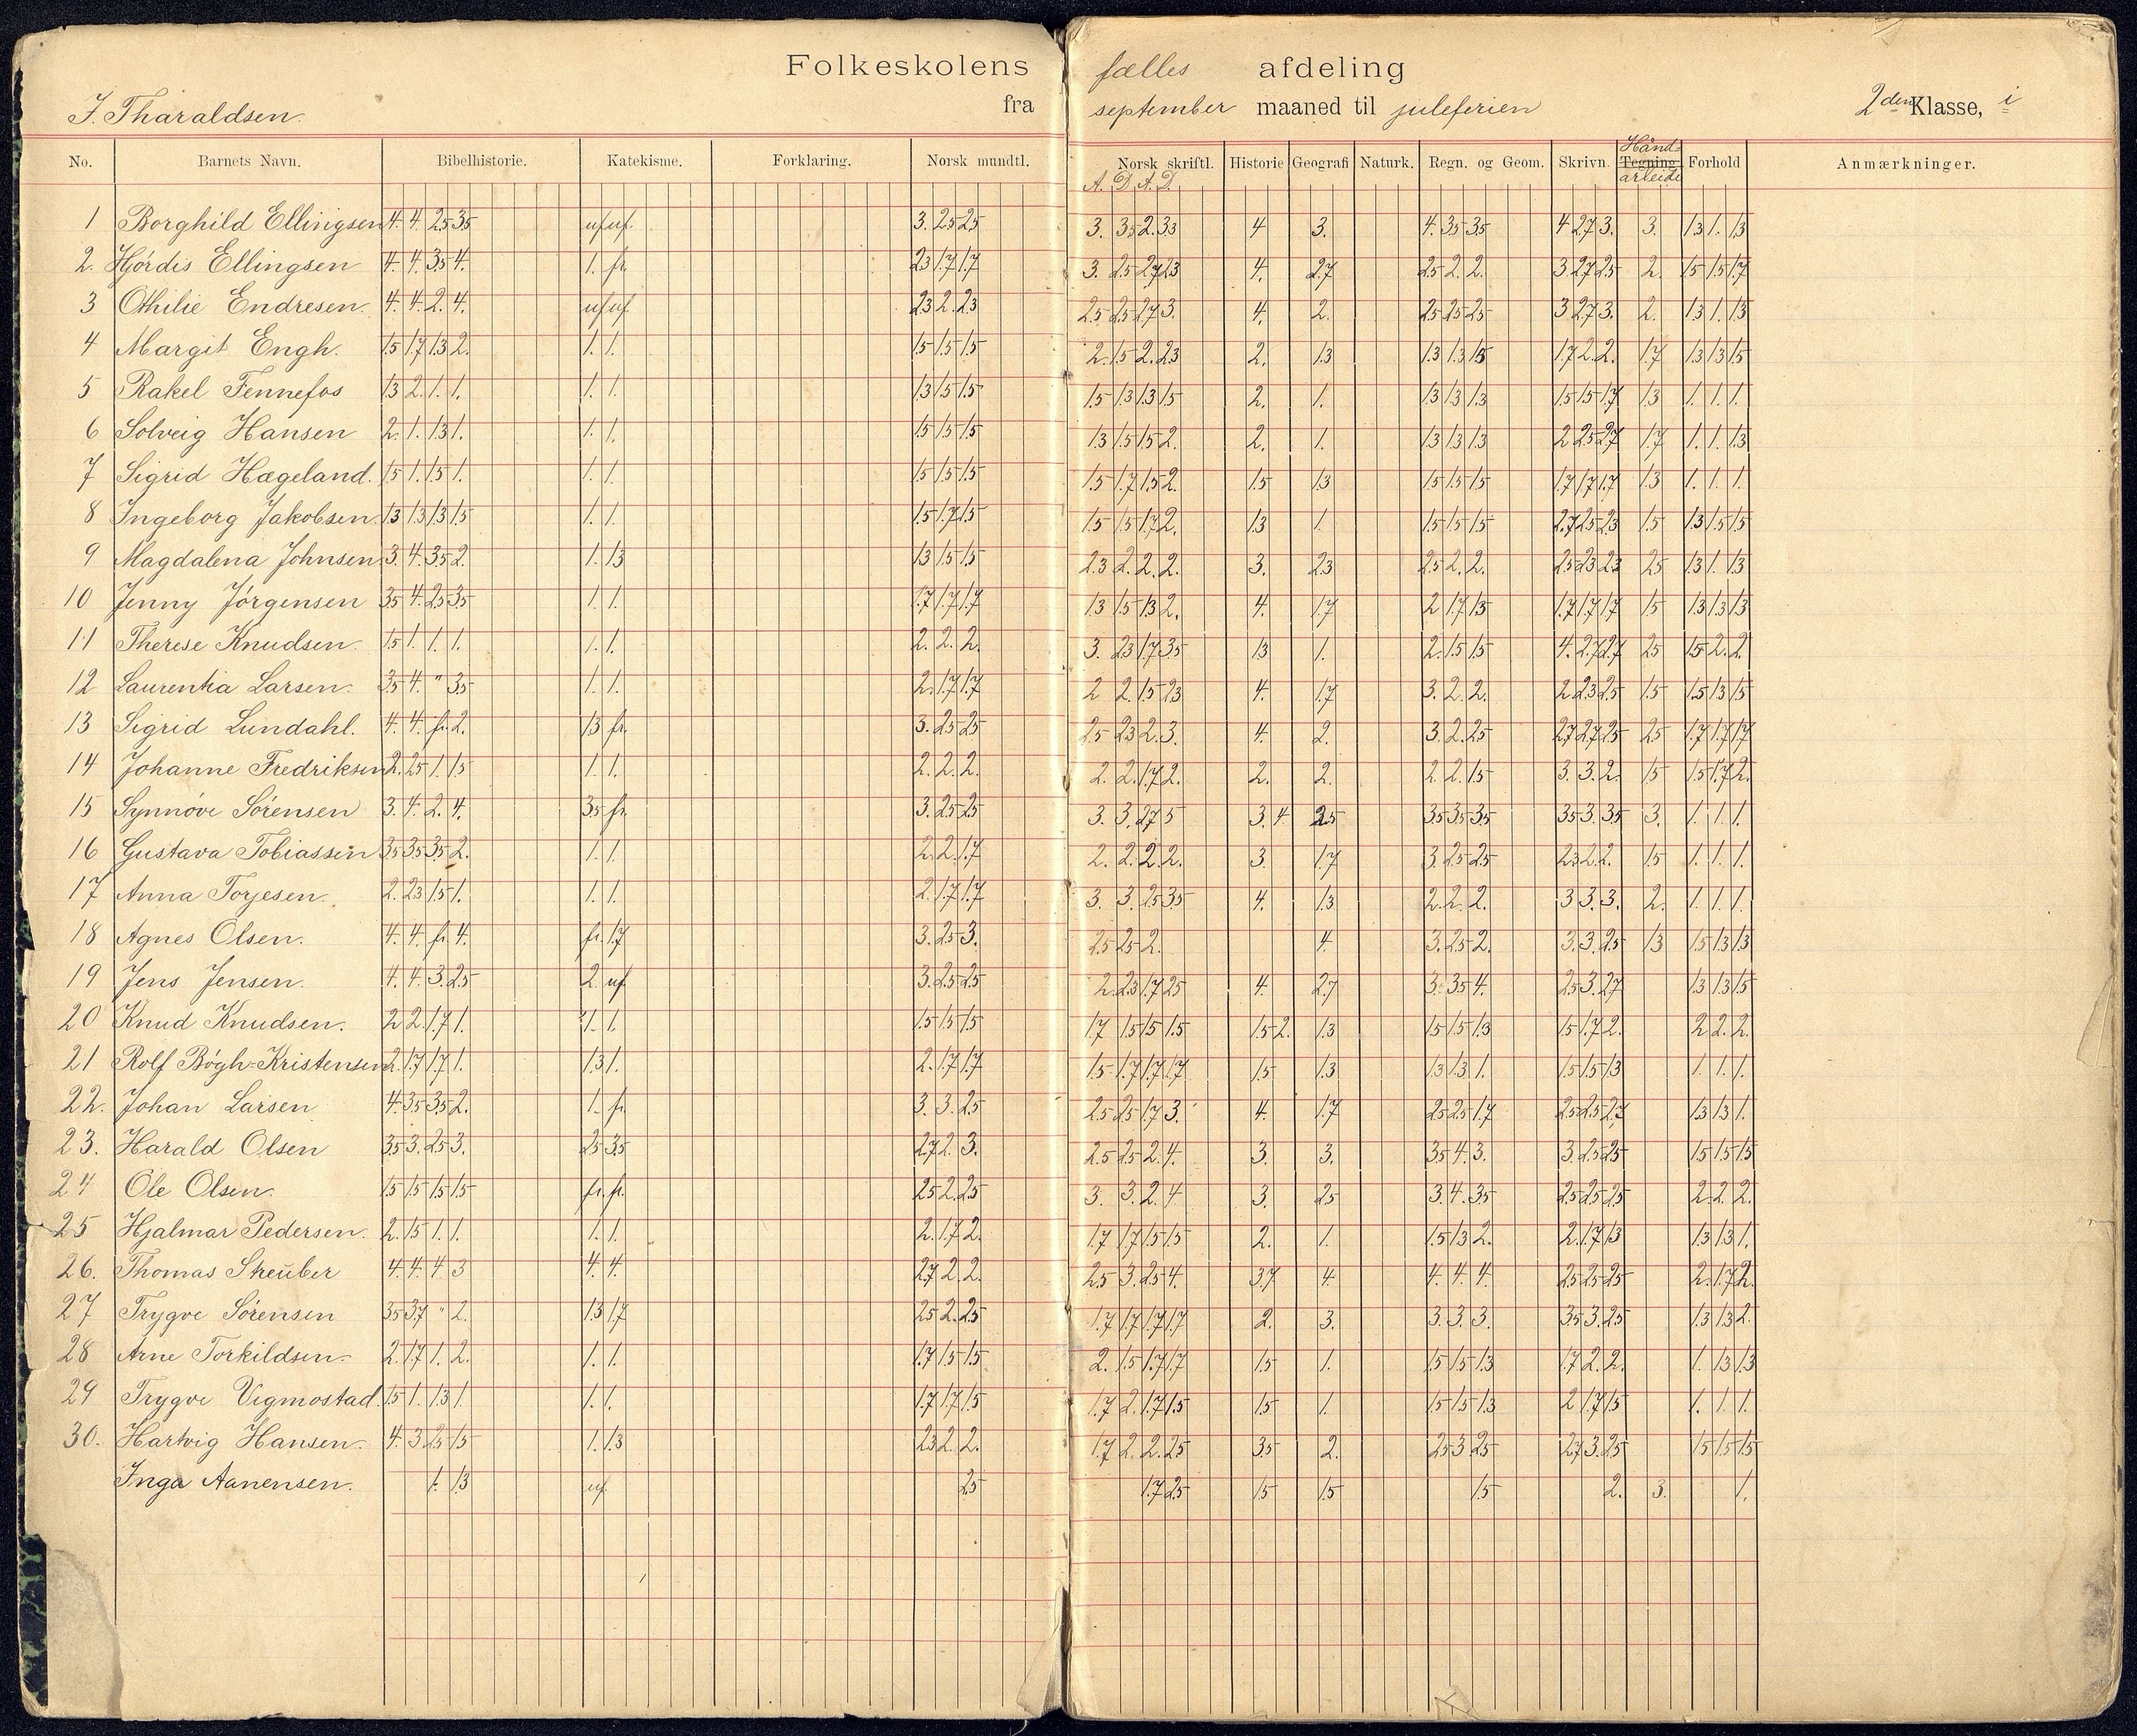 Folkeskolens fælles afdeling
J. Tharaldsen. fra september maaned til juleferien 2den Klasse, i
No. Barnets Navn. Bibelhistorie. Katekisme. Forklaring. Norsk mundtl. Norsk skriftl. Historie Geografi Naturk. Regn. og Geom. Skrivn. Tegning Haandarbeide Forhold Anmærkninger.
A. D. A. D.
1 Borghild Ellingsen 4. 4. 25 35 uf uf. 3. 25 25 3. 35 2. 33 4 3. 4. 35 35 4 27 3. 3. 13 1. 13
2. Hjórdis Ellingsen 4. 4. 35 4. 1. fr. 23 17 17 3. 25 27 23 4. 27 25 2. 2. 3 27 25 2. 15 15 17
3 Othilie Endresen. 4. 4. 2. 4. uf uf. 23 2. 23 25 25 27 3. 4. 2. 25 25 25 3 27 3. 2. 13 1. 13
4 Margit Engh. 15 17 13 2. 1. 1. 15 15 15 2. 15 2. 23 2. 13 13 13 15 17 2. 2. 17 13 13 15
5 Rakel Fennefos 13 2. 1. 1. 1. 1. 13 15 15 15 13 13 15 2. 1. 13 13 13 15 15 17 13 1. 1. 1.
6 Solveig Hansen 2. 1. 13 1. 1. 1. 15 15 15 13 15 15 2. 2. 1. 13 13 13 2 25 27 17 1. 1. 13
7 Sigrid Hægeland. 15 1. 15 1. 1. 1. 15 15 15 15 17 15 2. 15 13 15 15 15 17 17 17 13 1. 1. 1.
8 Ingeborg Jakobsen. 13 13 13 15 1. 1. 15 17 15 15 15 17 2. 13 1 15 15 15 27 25 23 15 13 15 15
9 Magdalena Johnsen 3. 4. 35 2. 1. 13 13 15 15 23 2. 2. 2. 3. 23 25 2. 2. 25 23 23 25 13 1. 13
10 Jenny Jórgensen 35 4. 25 35 1. 1. 17 17 17 13 15 13 2. 4. 17 2 17 13 17 17 17 15 13 13 13
11 Therese Knudsen. 15 1. 1. 1. 1. 1. 2. 2. 2. 3. 23 17 35 13 1. 2. 15 15 4. 27 27 25 15 2. 2.
12 Laurentia Larsen. 35 4. " 35 1. 1. 2. 17 17 2 2. 15 23 4. 17 3. 2. 2. 2 23 25 15 15 13 15
13 Sigrid Lundahl. 4. 4. fr. 2. 13 fr. 3. 25 25 25 23 2. 3. 4. 2. 3. 2. 25 27 27 25 25 17 17 17
14 Johanne Fredriksen 2. 25 1. 15 1. 1. 2. 2. 2. 2. 2. 17 2. 2. 2. 2. 2. 15 3. 3. 2. 15 15 17 2.
15 Synnóve Sórensen 3. 4. 2. 4. 35 fr. 3. 25 25 3. 3. 27 5 3. 4 25 35 35 35 35 3. 35 3. 1. 1. 1.
16 Gustava Tobiassen 35 35 35 2. 1. 1. 2. 2. 17 2. 2. 2. 2. 3. 17 3 25 25 23 2. 2. 15 1. 1. 1.
17 Anna Torjesen. 2. 23 15 1. 1. 1. 2. 17 17 3. 3. 25 35 4. 13 2. 2. 2. 3 3. 3. 2. 1. 1. 1.
18 Agnes Olsen. 4. 4. fr. 4. fr. 17 3. 25 3. 25 25 2. 4. 3. 25 2. 3. 3. 25 13 15 13 13
19 Jens Jensen. 4. 4. 3. 25 2. uf 3. 25 25 2. 23 17 25 4. 27 3. 35 4. 25 3. 27 13 13 15
20 Knud Knudsen. 2 2. 17 1. 1. 1. 15 15 15 17 15 15 15 15 2. 13 15 15 13 15 17 2. 2 2. 2.
21 Rolf Bógh-Kristensen 2. 17 17 1. 13 1. 2. 17 17 15 17 17 17 15 13 13 13 1. 15 15 13 1. 1. 1.
22. Johan Larsen 4. 35 35 2. 1. fr. 3. 3. 25 25 25 17 3. 4. 17 25 25 17 25 25 27 13 13 1.
23. Harald Olsen 35 3. 25 3. 25 35 27 2. 3. 25 25 2. 4. 3. 3. 35 4. 3. 3. 25 25 15 15 15
24 Ole Olsen. 15 15 15 15 fr. fr. 25 2. 25 3. 3. 2. 4 3. 25 3. 4. 35 25 25 25 2. 2. 2.
25 Hjalmar Pedersen. 2. 15 1. 1. 1. 1. 2. 17 2. 17 17 15 15 2. 1. 15 13 2. 2. 17 13 13 13 1.
26. Thomas Streuber 4. 4. 4. 3 4. 4. 27 2. 2. 25 3. 25 4. 37 4. 4. 4. 4. 25 25 25 2. 17 2.
27 Trygve Sórensen 35 37 " 2. 13 17 25 2. 25 17 17 17 17 2. 3. 3. 3. 3. 35 3. 25 13 13 2.
28 Arne Torkildsen. 2. 17 1. 2. 1. 1. 17 15 15 2. 15 17 17 15 1. 15 15 13 17 2. 2. 1. 13 13
29 Trygve Vigmostad. 15 1. 13 1. 1. 1. 17 17 15 17 2. 17 15 15 1. 15 15 13 2 17 15 1. 1. 1.
30. Hartvig Hansen. 4. 3 25 15 1. 13 23 2. 2. 17 2. 2. 25 35 2. 25 3 25 27 3. 25 15 15 15
Inga Aanensen. 1. 13 uf. 25 17 25 15 15 15 2. 3. 1.